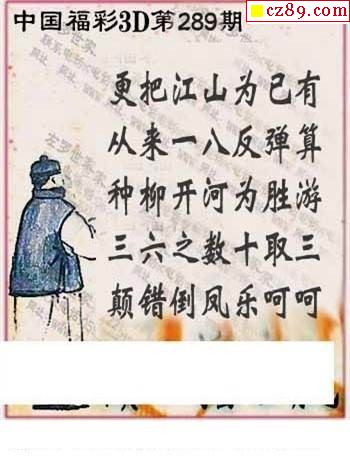 中国福彩3D第289期
cz89.com
更把江山为已有
从来一八反弹算
种柳开河为胜游
三六之数十取三
颠错倒凤乐呵呵